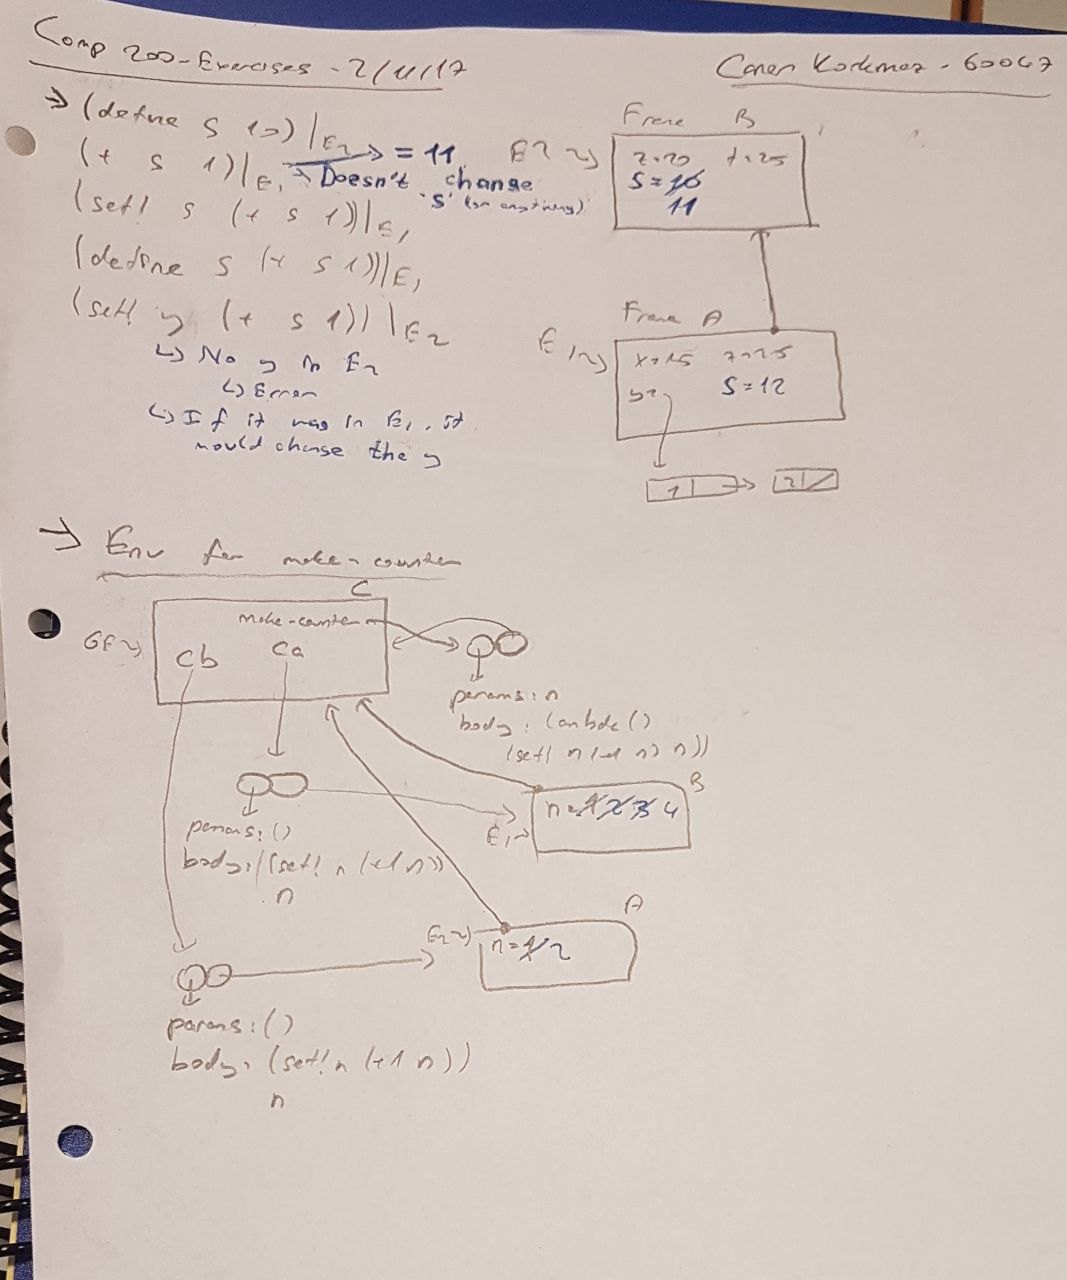 Comp 200 - Exercises - 2/11/17
Caner Korkmaz - 60047
→ (define s 10)|E2
(+ s 1)|E1 → = 11
→ Doesn't change
's' (or anything)
(set! s (+ s 1))|E1
(define s (+ s 1))|E1
(set! y (+ s 1))|E2
↳ No y in E2
↳ Error
↳ If it was in E1, it
would change the y
Frame B
E2
z=20
s = 10
11
Frame A
E1
x=15 z=25
y=
s = 12
1
2
→ Env for make-counter
C
GE
make-counter
cb ca
params: n
body: (lambda ()
(set! n (+1 n) n))
params: ()
body: ((set! n (+1 n))
n
B
E1
n = 1 2 3 4
A
E2
n = 1 2
params: ()
body: (set! n (+1 n))
n